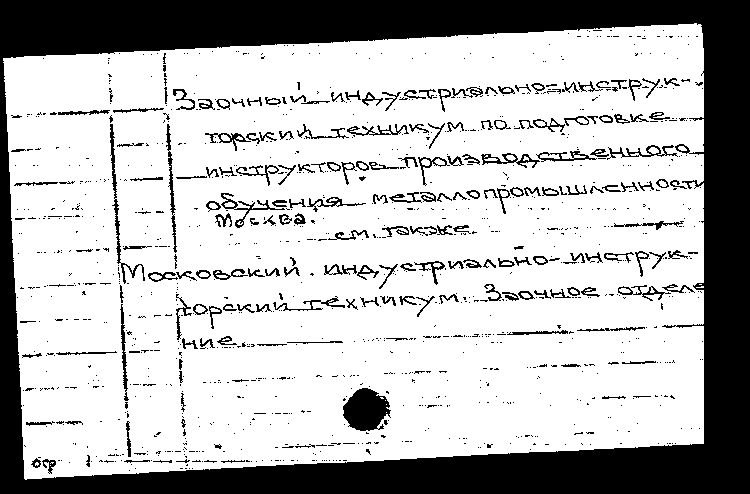 Заочный индустриально-инструк-
торский техникум по подготовке
инструкторов производственного
обучения металлопромышленности
Москва.
см. также
Московский индустриально-инструк-
торский техникум. Заочное отделе
ние.